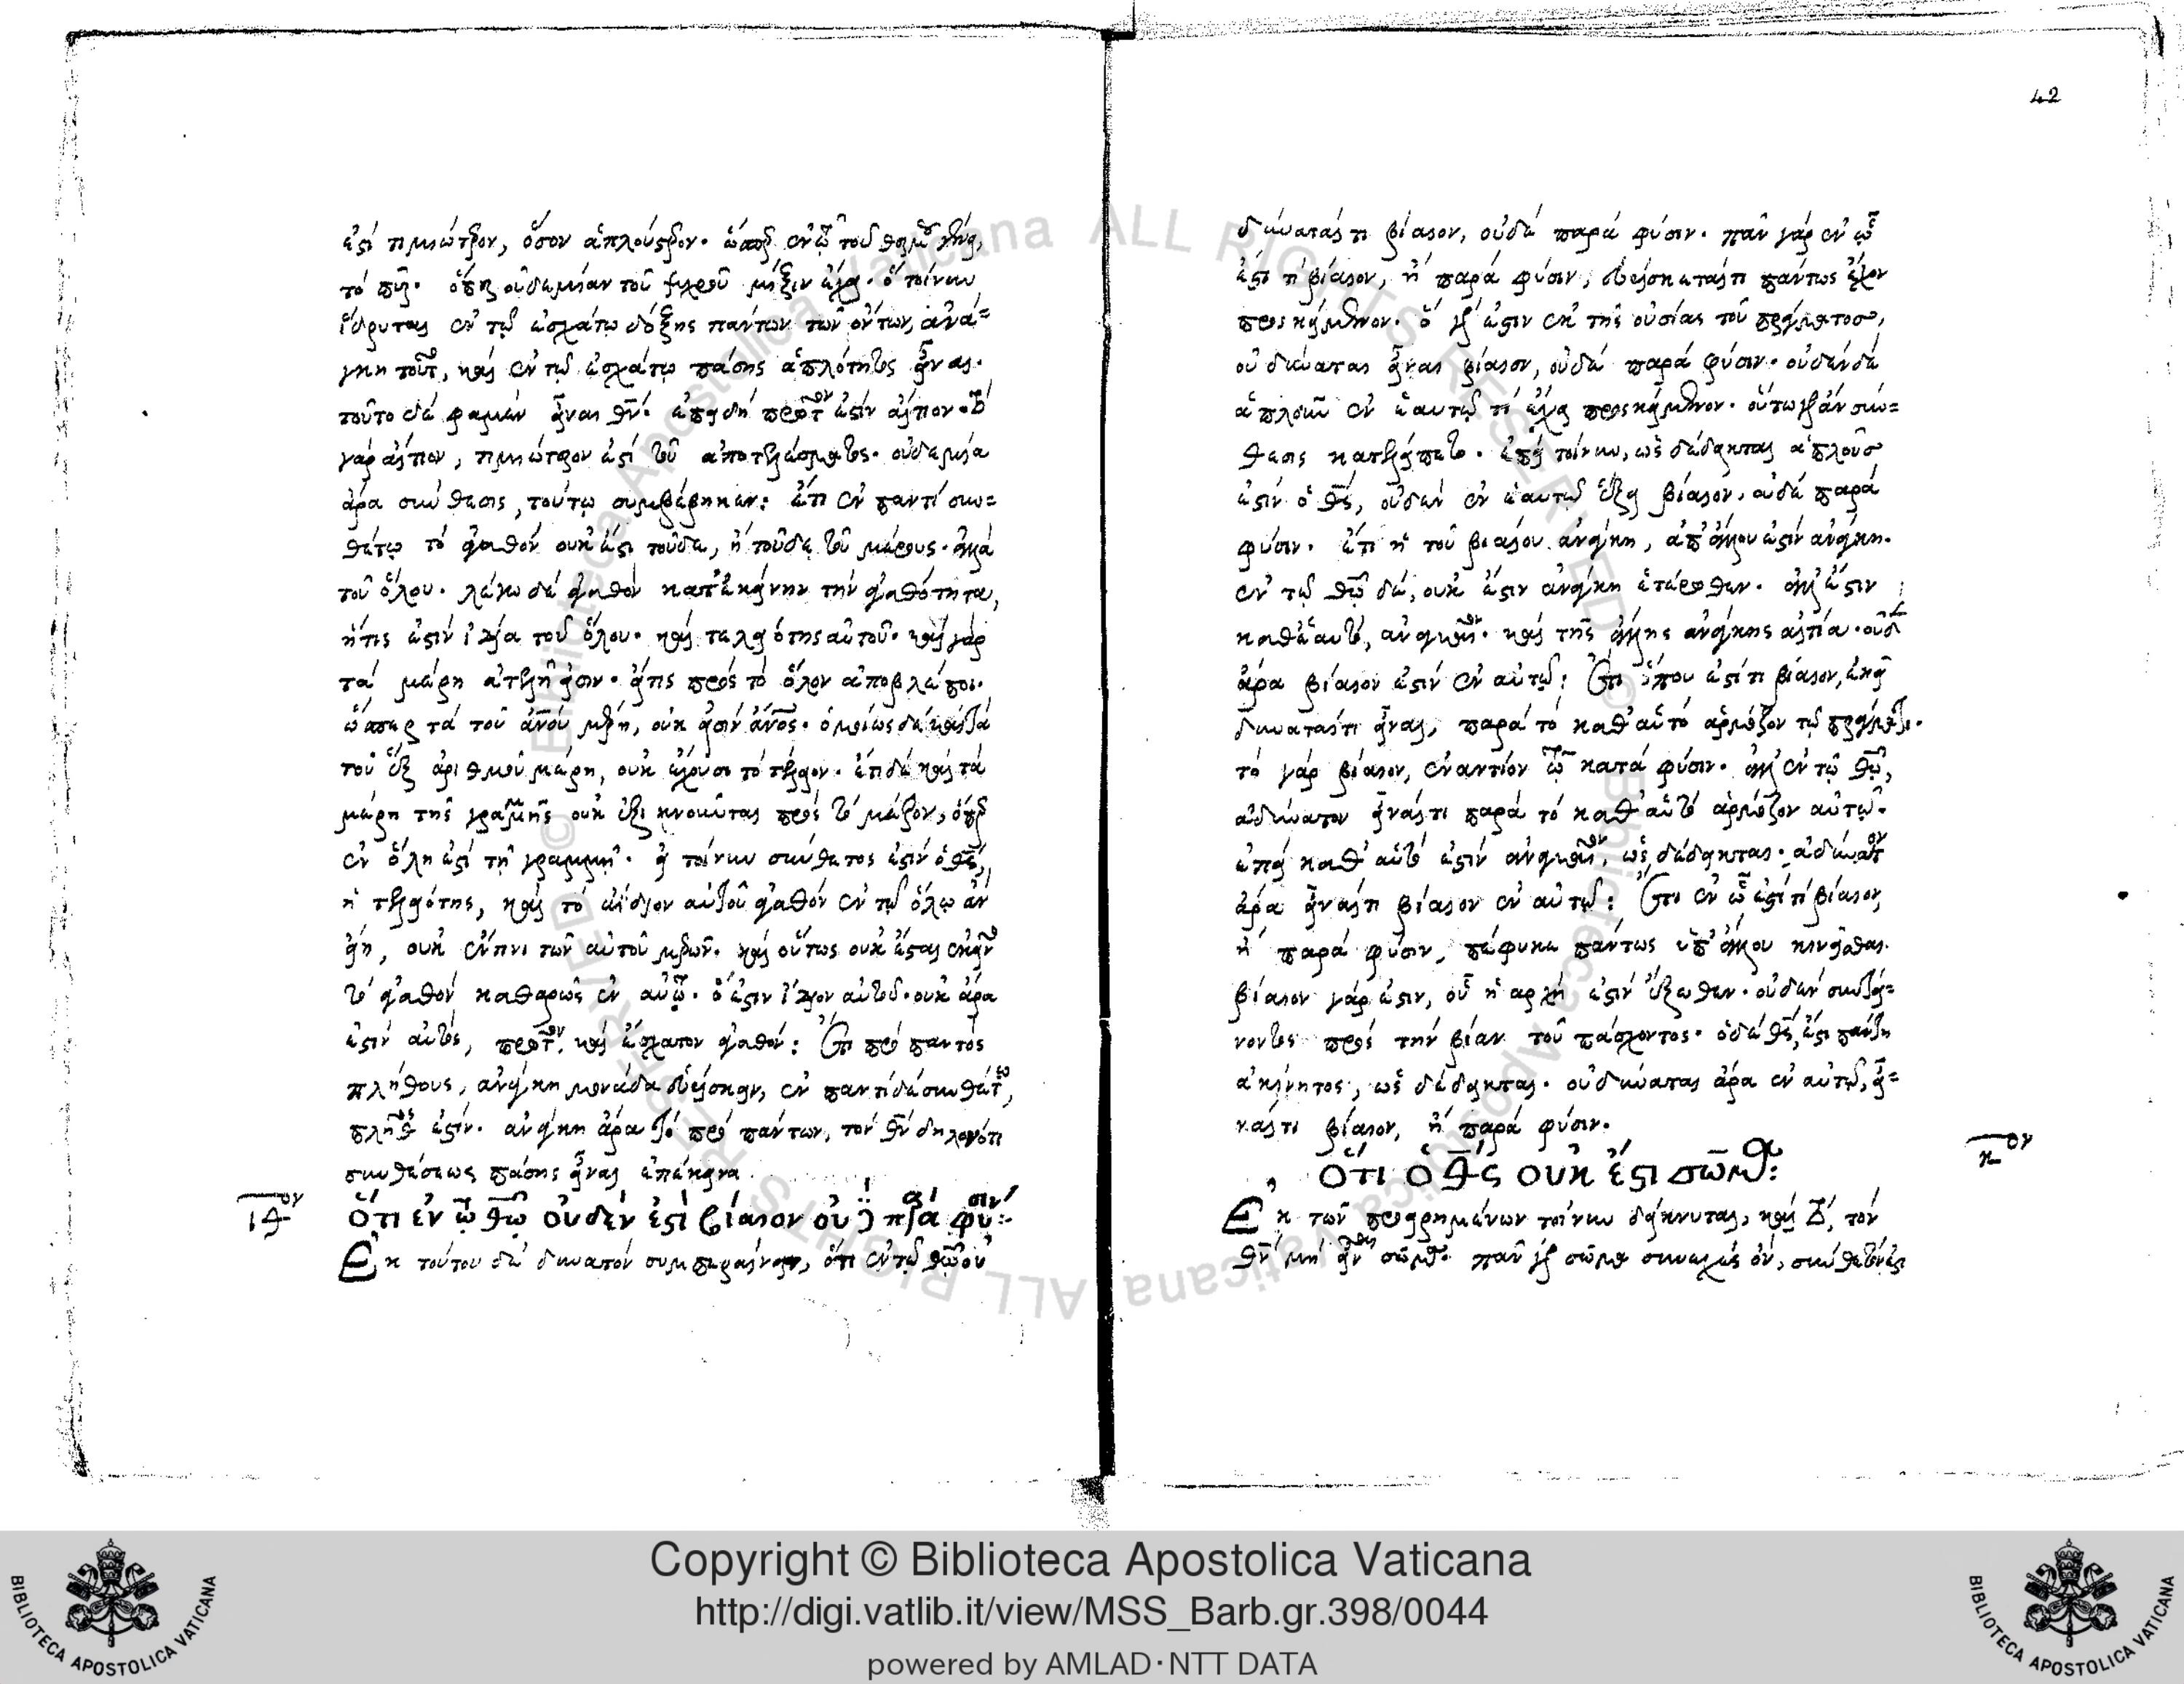 ἐστὶ τιμιώτερον, ὅσον ἁπλούστερον. ὥσπερ ἐν τῷ τοῦ θερμοῦ γένει,
τὸ πῦρ. ὅπερ οὐδεμίαν τοῦ ψυχροῦ μίξιν ἔχει. ὃ τοίνυν
ἵδρυται ἐν τῷ ἐσχάτῳ δόξης πάντων τῶν ὄντων, ἀνά=
γκη τοῦτο, καὶ ἐν τῷ ἐσχάτῳ πάσης ἁπλότητος εἶναι.
τοῦτο δέ φαμεν εἶναι θν̅. ἐπειδὴ πρῶτον ἐστὶν αἴτιον. τὸ
γὰρ αἴτιον, τιμιώτερον ἐστὶ τοῦ ἀποτελέσματος. οὐδεμία
ἄρα σύνθεσις, τούτῳ συμβέβηκεν: ἔτι ἐν παντὶ συν=
θέτῳ τὸ ἀγαθὸν οὐκ ἔστι τοῦδε, ἢ τοῦδε τοῦ μέρους. ἀλλὰ
τοῦ ὅλου. λέγω δὲ ἀγαθὸν κατ' ἐκείνην τὴν ἀγαθότητα,
ἥτις ἐστὶν ἰδία τοῦ ὅλου. καὶ τελειότης αὐτοῦ. καὶ γὰρ
τὰ μέρη ἀτελῆ εἰσιν. εἴτις πρὸς τὸ ὅλον ἀποβλέποι.
ὥσπερ τὰ τοῦ ἀν̅ου μέρη, οὐκ εἰσὶν ἀν̅ος. ὁμοίως δὲ καὶ τὰ
τοῦ ἓξ ἀριθμοῦ μέρη, οὐκ ἔχουσι τὸ τέλειον. ἔτι δὲ καὶ τὰ
μέρη τῆς γραμμῆς οὐκ ἐξικνοῦνται πρὸς τὸ μεῖζον, ὅπερ
ἐν ὅλῃ ἐστὶ τῇ γραμμῇ. εἰ τοίνυν σύνθετος ἐστὶν ὁ θς̅,
ἡ τελειότης, καὶ τὸ ἴδιον αὐτοῦ ἀγαθὸν ἐν τῷ ὅλῳ ἂν
εἴη, οὐκ ἔν τινι τῶν αὐτοῦ μερῶν. καὶ οὕτως οὐκ ἔσται ἐκεῖνο
τὸ ἀγαθὸν καθαρῶς ἐν αὐτῷ. ὅ ἐστιν ἴδιον αὐτοῦ. οὐκ ἄρα
ἐστὶν αὐτός, πρῶτον καὶ ἔσχατον ἀγαθόν: Ἔτι πρὸ παντὸς
πλήθους, ἀνάγκη μονάδα εὑρίσκειν, ἐν παντὶ δὲ συνθέτῳ,
πλῆθος ἐστίν. ἀνάγκη ἄρα τὸ πρὸ πάντων, τὸν θν̅ δηλονότι
συνθέσεως πάσης εἶναι ἐπέκεινα.
ιθ̅ον ὅτι ἐν τῷ θω̅ οὐδέν ἐστι βίαιον οὐδὲ παρὰ φύσιν:
Ἐκ τούτου δὲ δυνατὸν συμπεραίνειν, ὅτι ἐν τῷ θω̅ οὐ
42
δύναταί τι βίαιον, οὐδὲ παρὰ φύσιν. πᾶν γὰρ ἐν ᾧ
ἐστί τι βίαιον, ἢ παρὰ φύσιν, εὑρίσκεταί τι πάντως ἔχον
προσκείμενον. ὃ γάρ ἐστιν ἐκ τῆς οὐσίας τοῦ πράγματος,
οὐ δύναται εἶναι βίαιον, οὐδὲ παρὰ φύσιν. οὐδὲν δὲ
ἁπλοῦν ἐν ἑαυτῷ τι ἔχει προσκείμενον. οὕτω γὰρ ἂν σύν=
θεσις καταλείπετο. ἐπεὶ τοίνυν, ὡς δέδεικται ἁπλοῦς
ἐστὶν ὁ θς̅, οὐδὲν ἐν ἑαυτῷ ἕξει βίαιον, οὐδὲ παρὰ
φύσιν. ἔτι ἡ τοῦ βιαίου ἀνάγκη, ἀπ' ἄλλου ἐστὶν ἀνάγκη.
ἐν τῷ θω̅ δέ, οὐκ ἔστιν ἀνάγκη ἑτέρωθεν. ἀλλ' ἔστιν
καθ' ἑαυτό, ἀναγκαῖον. καὶ τῆς ἄλλης ἀνάγκης αἰτία. οὐδὲν
ἄρα βίαιον ἐστὶν ἐν αὐτῷ: Ἔτι ὅπου ἐστί τι βίαιον, ἐκεῖ
δύναταί τι εἶναι, παρὰ τὸ καθ' αὑτὸ ἁρμόζον τῷ πράγματι.
τὸ γὰρ βίαιον, ἐναντίον τῷ κατὰ φύσιν. ἀλλ' ἐν τῷ θω̅,
ἀδύνατον εἶναί τι παρὰ τὸ καθ' αὑτὸ ἁρμόζον αὐτῷ.
ἐπεὶ καθ' αὑτὸ ἐστὶν ἀναγκαῖον, ὡς δέδεικται. ἀδύνατον
ἄρα εἶναί τι βίαιον ἐν αὐτῷ: Ἔτι ἐν ᾧ ἐστί τι βίαιον,
ἢ παρὰ φύσιν, πέφυκε πάντως ὑπ' ἄλλου κινεῖσθαι.
βίαιον γάρ ἐστιν, οὗ ἡ ἀρχὴ ἐστὶν ἔξωθεν. οὐδὲν συντεί=
νοντος πρὸς τὴν βίαν τοῦ πάσχοντος. ὁ δὲ θς̅, ἐστὶ πάντη
ἀκίνητος, ὡς δέδεικται. οὐ δύναται ἄρα ἐν αὐτῷ, εἶ=
ναί τι βίαιον, ἢ παρὰ φύσιν.
ὅτι ὁ θς̅ οὐκ ἔστι σῶμα: κ̅ον
Ἐκ τῶν προειρημένων τοίνυν δείκνυται, καὶ τὸ, τὸν
θν̅ μὴ εἶναι σῶμα. πᾶν γὰρ σῶμα συνεχὲς ὄν, σύνθετόν ἐστι
Copyright © Biblioteca Apostolica Vaticana
http://digi.vatlib.it/view/MSS_Barb.gr.398/0044
powered by AMLAD·NTT DATA